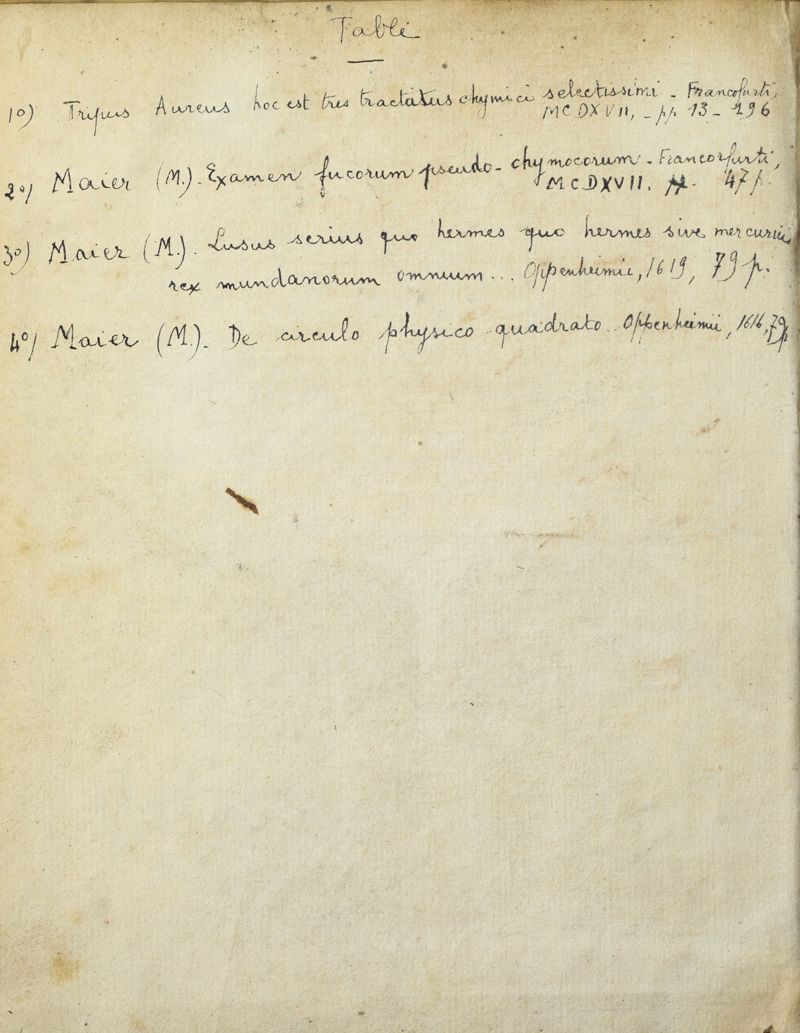 Table
1º) Tripus Aureus hoc est tres tractatus chymici selectissimi - Francofurti,
MCDXVII, - pp 13 - 196
2º) Maier (M.). Examen fucorum pseudo-chymocorum - Francorfurti,
MCDXVII. pp. 47 p.
3º) Maier (M.). Lusus serius quo hermes quo hermes sive mercurius
rex mundanorum omnium... Oppenheimii, 1619, 79 p.
4º) Maier (M.). De circulo physico quadrato.. Oppenheimii, 1616, 79 p.